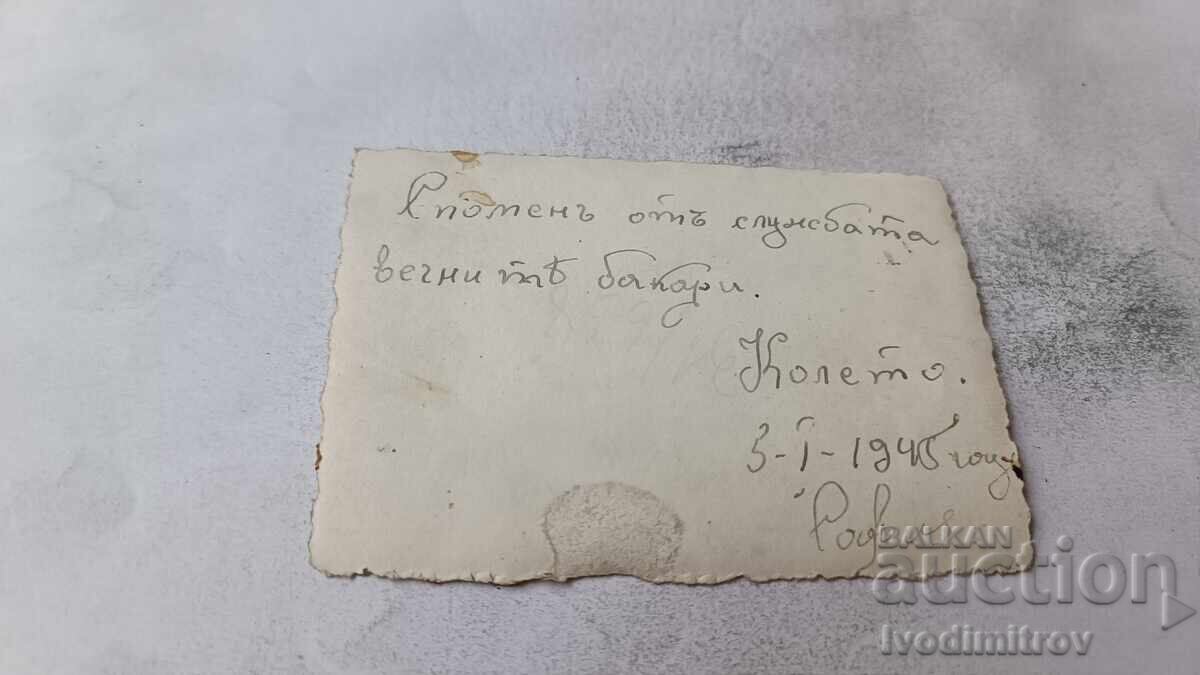 Споменъ отъ службата
вечнитѣ бакари.
Колето.
3-I-1945 год
София
BALKAN
auction
Ivodimitrov